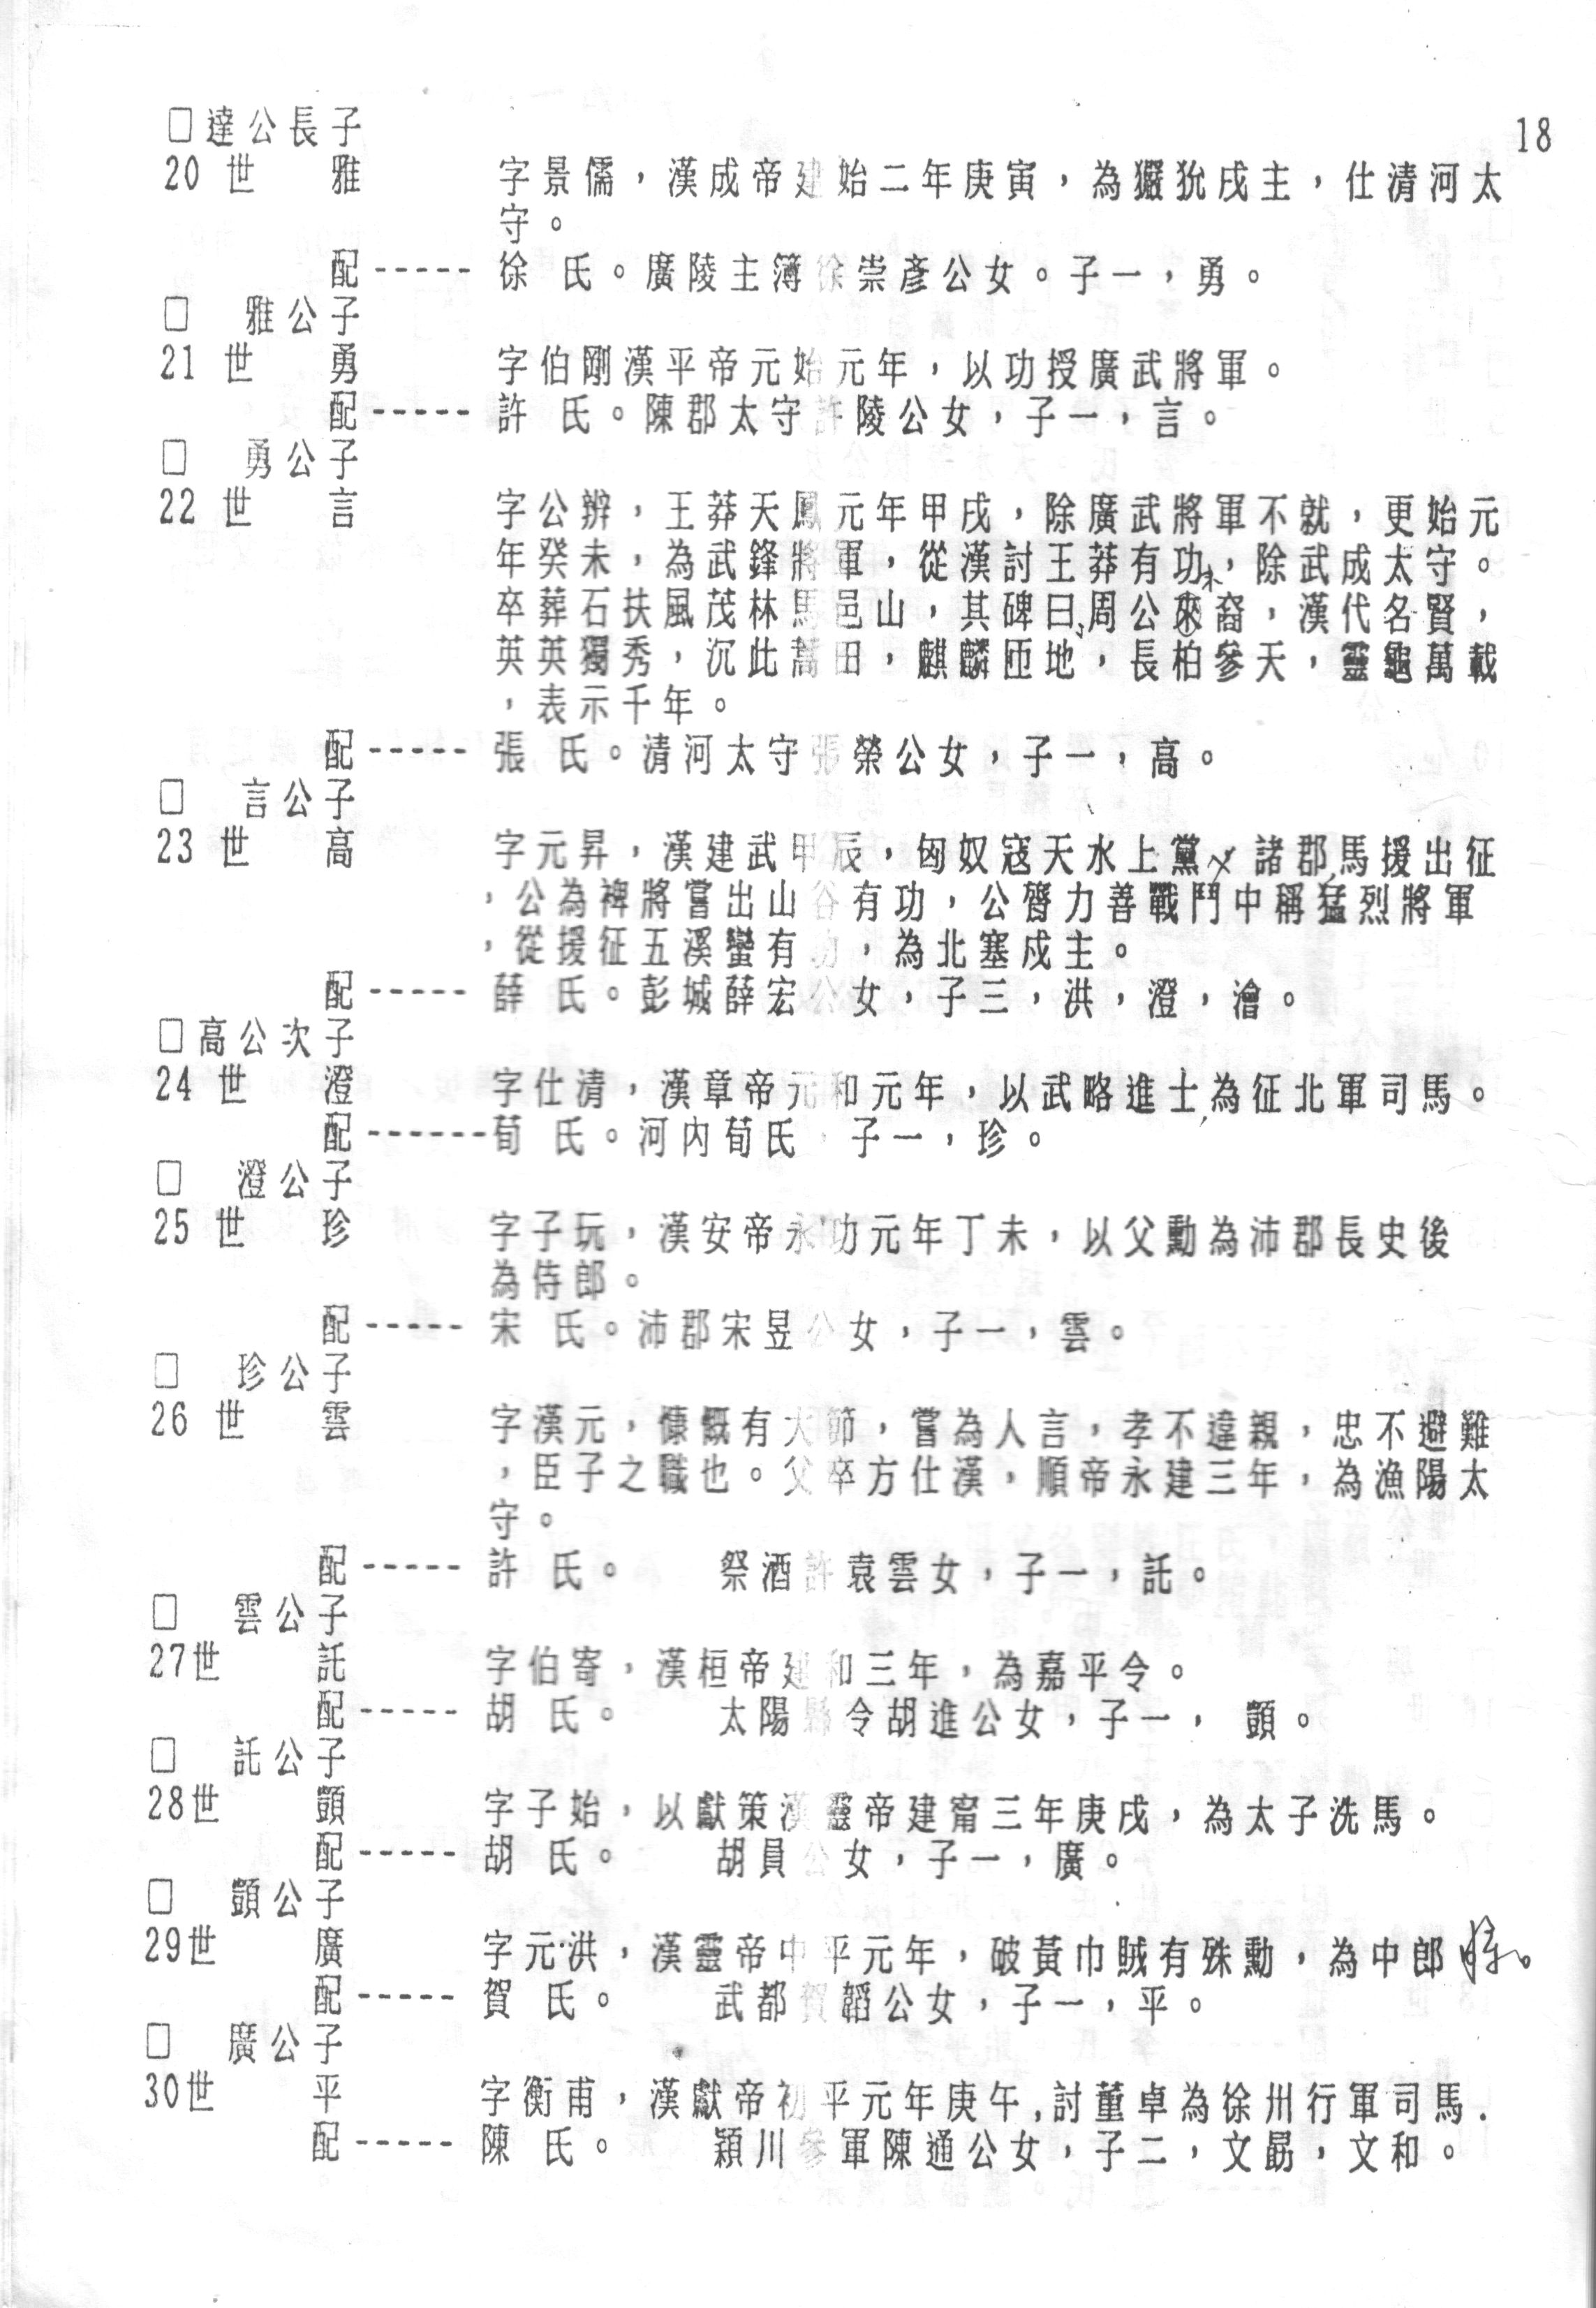 18
□達公長子
20 世 雅 字景儒，漢成帝建始二年庚寅，為玁狁戍主，仕清河太
守。
配----- 徐 氏。廣陵主簿徐崇彥公女。子一，勇。
□ 雅公子
21 世 勇 字伯剛漢平帝元始元年，以功授廣武將軍。
配----- 許 氏。陳郡太守許陵公女，子一，言。
□ 勇公子
22 世 言 字公辨，王莽天鳳元年甲戌，除廣武將軍不就，更始元
年癸未，為武鋒將軍，從漢討王莽有功，除武成太守。
卒葬石扶風茂林馬邑山，其碑曰、周公來裔，漢代名賢，
英英獨秀，沉此蒿田，麒麟匝地，長柏參天，靈龜萬載
，表示千年。
配----- 張 氏。清河太守張榮公女，子一，高。
□ 言公子
23 世 高 字元昇，漢建武甲辰，匈奴寇天水上黨諸郡馬援出征
，公為裨將嘗出山谷有功，公膂力善戰鬥中稱猛烈將軍
，從援征五溪蠻有功，為北塞戍主。
配----- 薛 氏。彭城薛宏公女，子三，洪，澄，澮。
□高公次子
24 世 澄 字仕清，漢章帝元和元年，以武略進士為征北軍司馬。
配------荀 氏。河內荀氏，子一，珍。
□ 澄公子
25 世 珍 字子玩，漢安帝永功元年丁未，以父勳為沛郡長史後
為侍郎。
配----- 宋 氏。沛郡宋昱公女，子一，雲。
□ 珍公子
26 世 雲 字漢元，慷慨有大節，嘗為人言，孝不違親，忠不避難
，臣子之職也。父卒方仕漢，順帝永建三年，為漁陽太
守。
配----- 許 氏。 祭酒許袁雲女，子一，託。
□ 雲公子
27世 託 字伯寄，漢桓帝建和三年，為嘉平令。
配----- 胡 氏。 太陽縣令胡進公女，子一， 顗。
□ 託公子
28世 顗 字子始，以獻策漢靈帝建甯三年庚戌，為太子洗馬。
配----- 胡 氏。 胡員公女，子一，廣。
□ 顗公子
29世 廣 字元洪，漢靈帝中平元年，破黃巾賊有殊勳，為中郎將。
配----- 賀 氏。 武都賀韜公女，子一，平。
□ 廣公子
30世 平 字衡甫，漢獻帝初平元年庚午,討董卓為徐州行軍司馬.
配----- 陳 氏。 潁川參軍陳通公女，子二，文勗，文和。